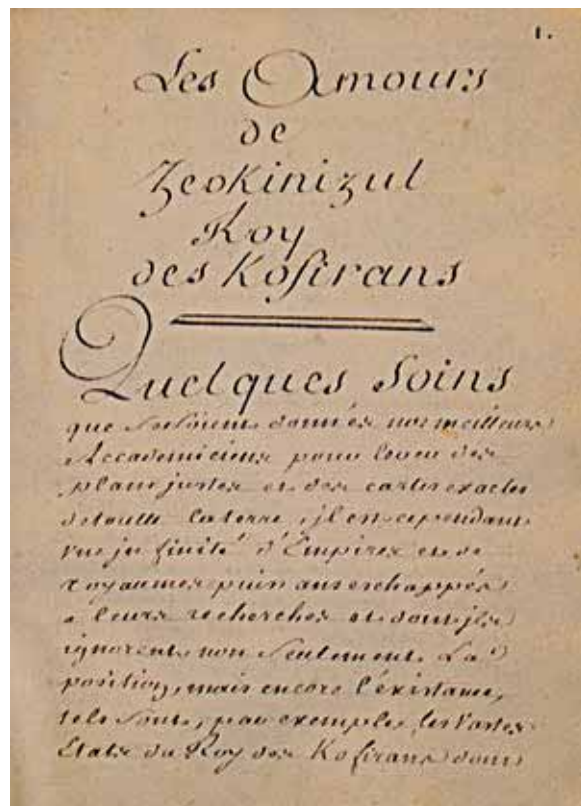 1.
Les Amours
de
Zeokinizul
Roy
des Kofirans
Quelques Soins
que se soient donnés nos meilleurs
Accademiciens pour lever des
plans justes et des cartes exactes
de toutte la terre, il est cependant
une infinité d'Empires et de
royaumes puissans eschappés
a leurs recherches et dont ils
ignorent non seulement La
position, mais encore l'existance,
tels sont, par exemple, les Vastes
Etats du Roy des Kofirans dont